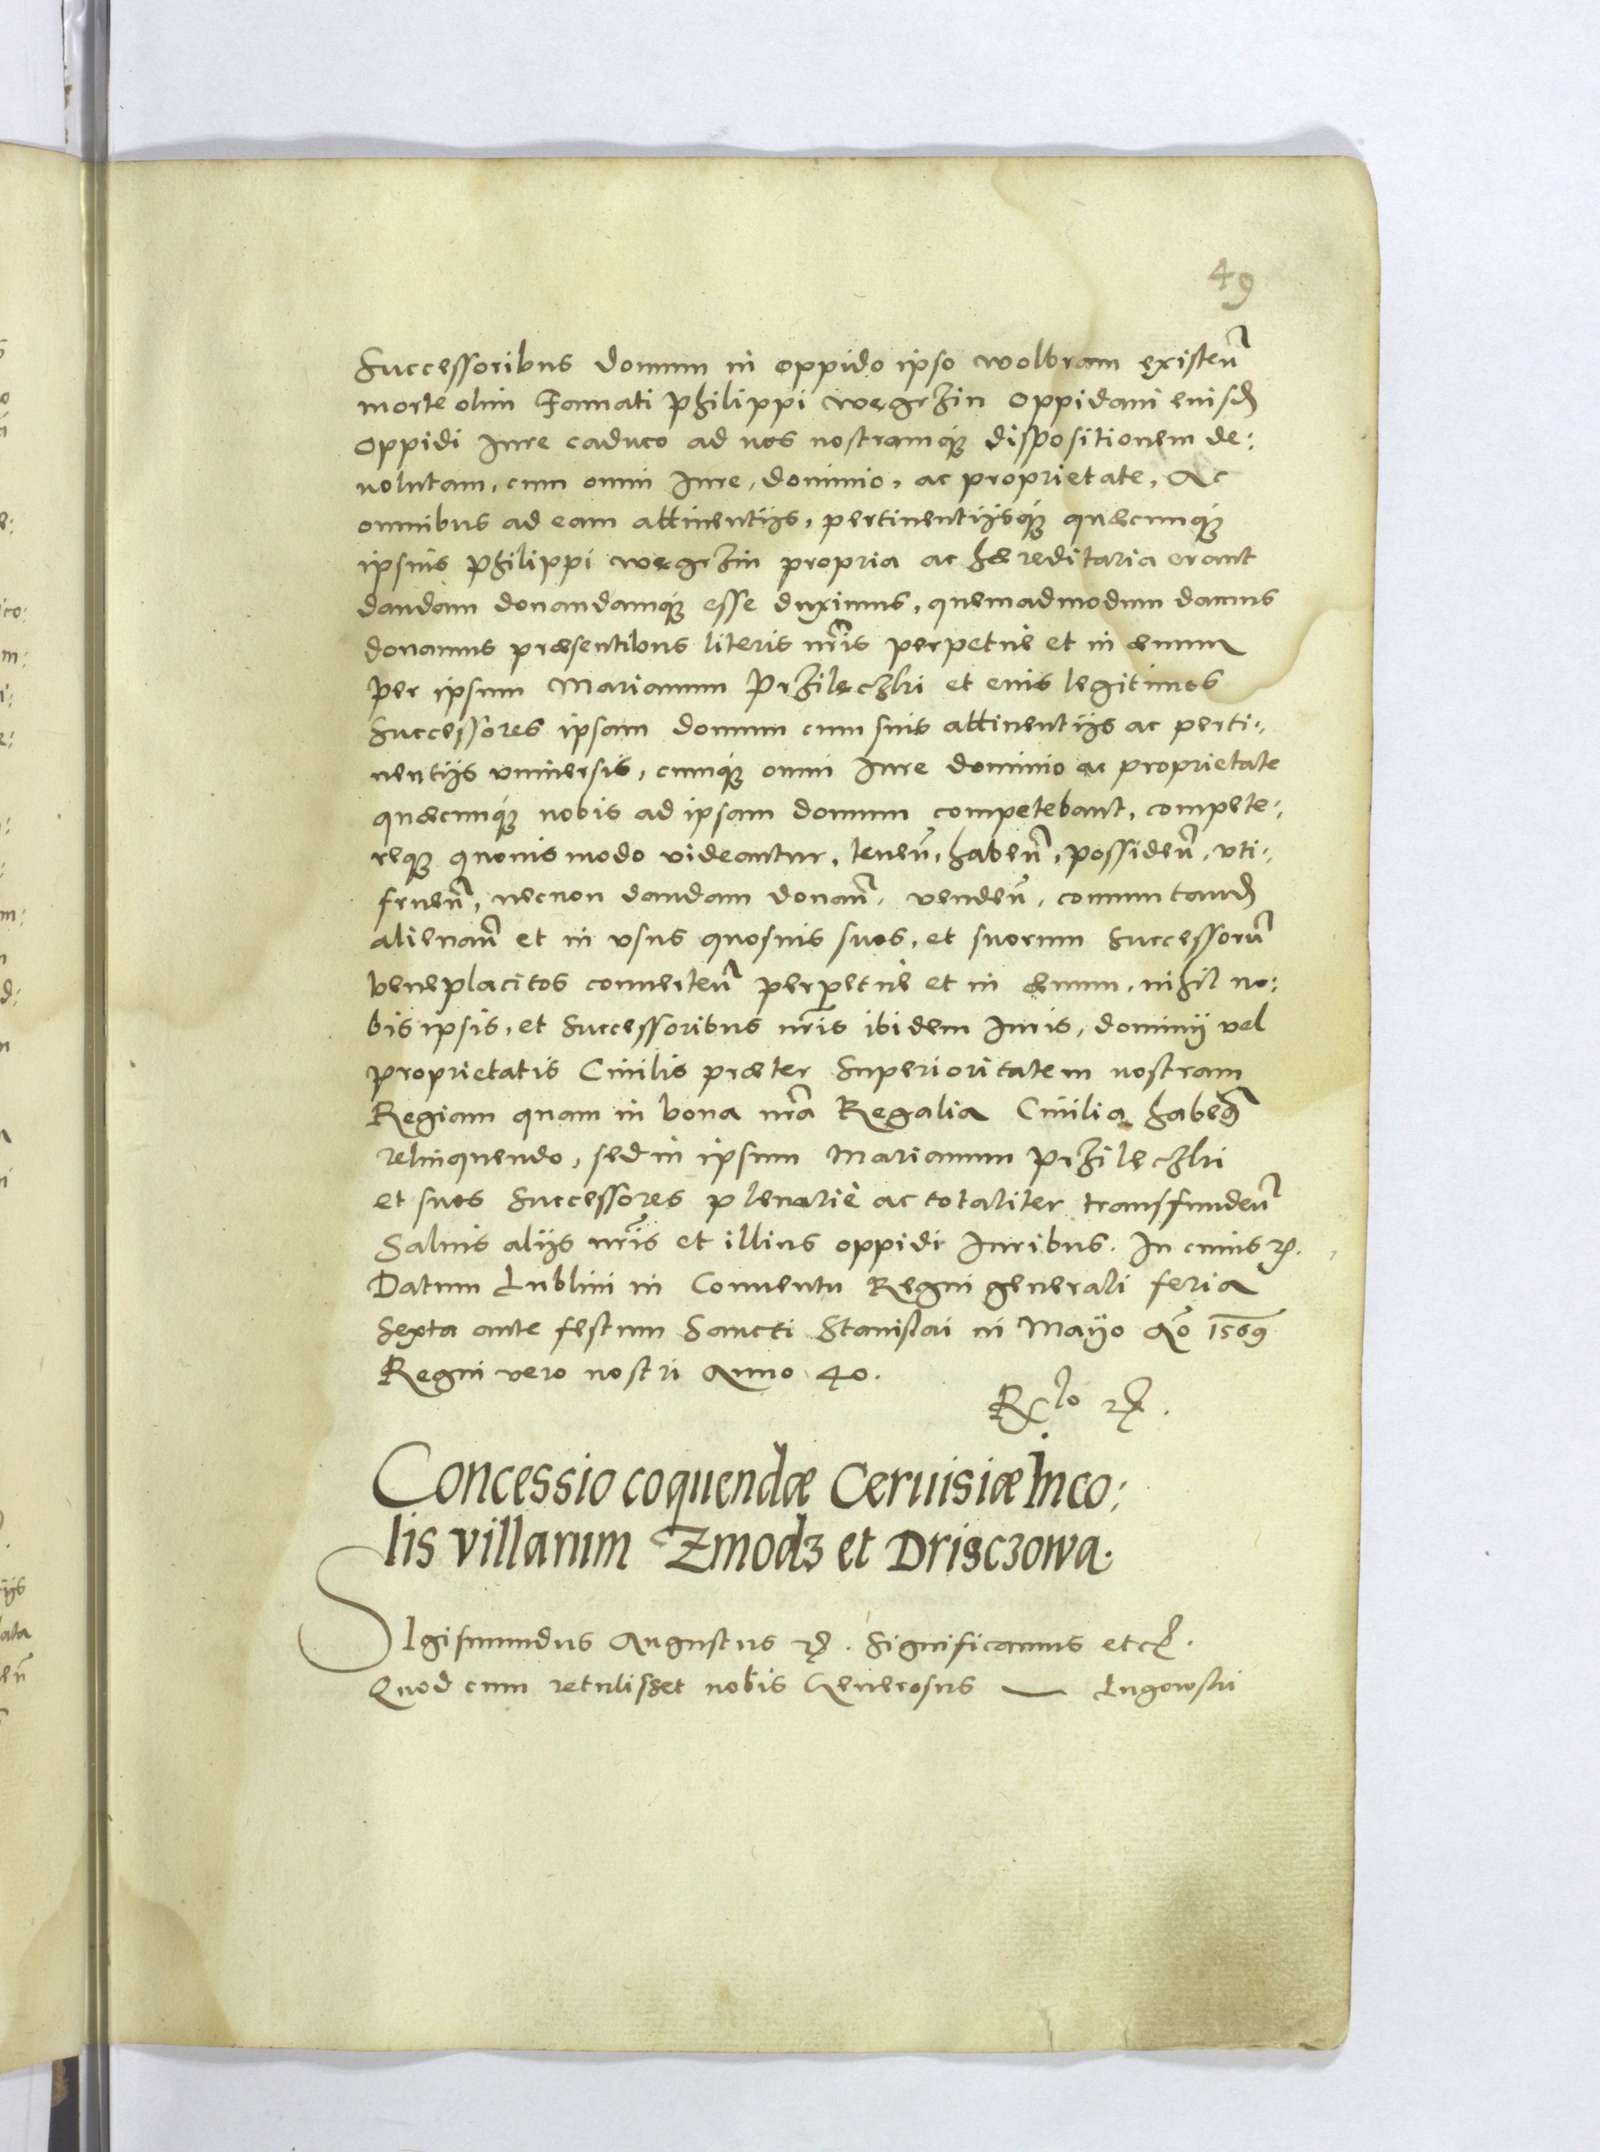 49
Successoribus domum in oppido ipso wolbram existen̄
morte olim Famati Philippi węgrzin oppidani eiusd̄
oppidi iure caduco ad nos nostramq́ꝫ dispositionem de:
uolutam, cum omni iure, dominio, ac proprietate, Ac
omnibus ad eam attinentijs, pertinentijsq́ꝫ quæcunq́ꝫ
ipsius Philippi węgrzin propria ac hæreditaria erant
dandam donandamq́ꝫ esse duximus, quemadmodum damus
donamus præsentibus literis nr̄is perpetuè et in æuum
per ipsum Marianum Przilęczki et eius legitimos
Successores ipsam domum cum suis attinentijs ac perti:
nentijs vniuersis, cumq́ꝫ omni iure dominio ac proprietate
quæcunq́ꝫ nobis ad ipsam domum competebant, compete:
reqꝫ quouis modo uideantur, tenen̄, haben̄, possiden̄, vti:
fruen̄, necnon dandam donan̄, venden̄, commutand̄
alienan̄ et in vsus quosuis suos, et suorum Successorū
beneplacitos conuerten̄ perpetuè et in æuum, nihil no:
bis ipsis, et Successoribus nr̄is ibidem iuris, dominij vel
proprietatis Ciuilis præter Superioritatem nostram
Regiam quam in bona nr̄a Regalia Ciuilia habem̄
relinquendo, sed in ipsum Marianum Przileczki
et suos Successores plenariè ac totaliter transfunden̄
Saluis alijs nr̄is et illius oppidi iuribus. In cuius rei.
Datum Lublini in Conuentu Regni generali feria
Sexta ante festum Sancti Stanislai in Mayo Aō 1569
Regni vero nostri Anno 40.
R͞lo
Concessio coquendæ Ceruisiæ Inco:
lis villarum Zmodz et Drisczowa.
SIgismundus Augustus etc. Significamus etc.
Quod cum retulisset nobis Generosus — Lugowski